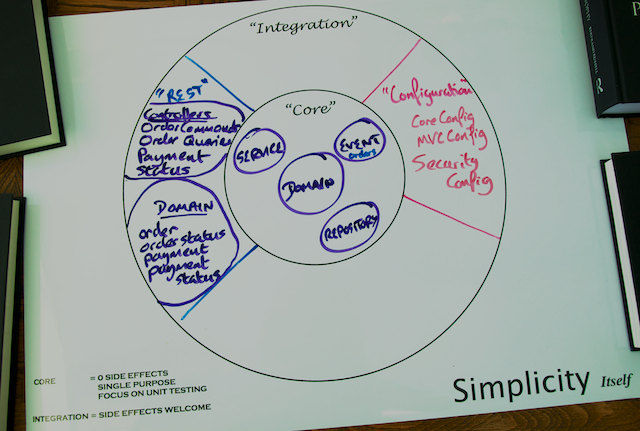 "Integration"
"REST"
Controllers
OrderCommands
Order Queries
Payment
Status
DOMAIN
order
order status
payment
payment
status
"Core"
SERVICE
EVENT
orders
DOMAIN
REPOSITORY
"Configuration"
Core Config
MVC Config
Security
Config
CORE = 0 SIDE EFFECTS
SINGLE PURPOSE
FOCUS ON UNIT TESTING
INTEGRATION = SIDE EFFECTS WELCOME
Simplicity Itself